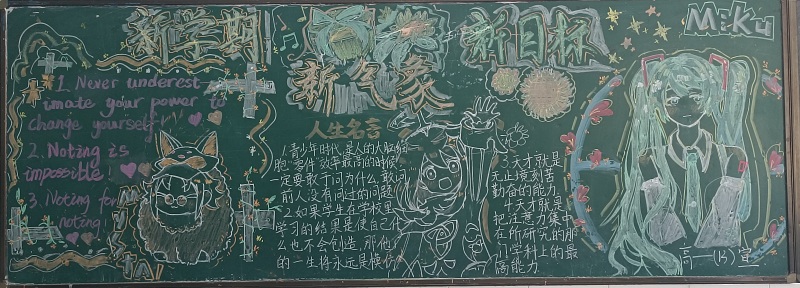 新学期
新气象
新目标
Miku
1. Never underest
imate your power to
change yourself!
2. Noting is
impossible!
3. Noting for
noting
人生名言
1.青少年时代,是人的大脑细
胞"零件"效率最高的时候,一
定要敢于问为什么,敢问
前人没有问过的问题
2.如果学生在学校里
学习的结果是使自己什
么也不会创造,那他
的一生将永远是模仿
3.天才就是
无止境刻苦
勤奋的能力
4.天才就是
把注意力集中
在所研究的那
门学科上的最
高能力
高一(13)宣